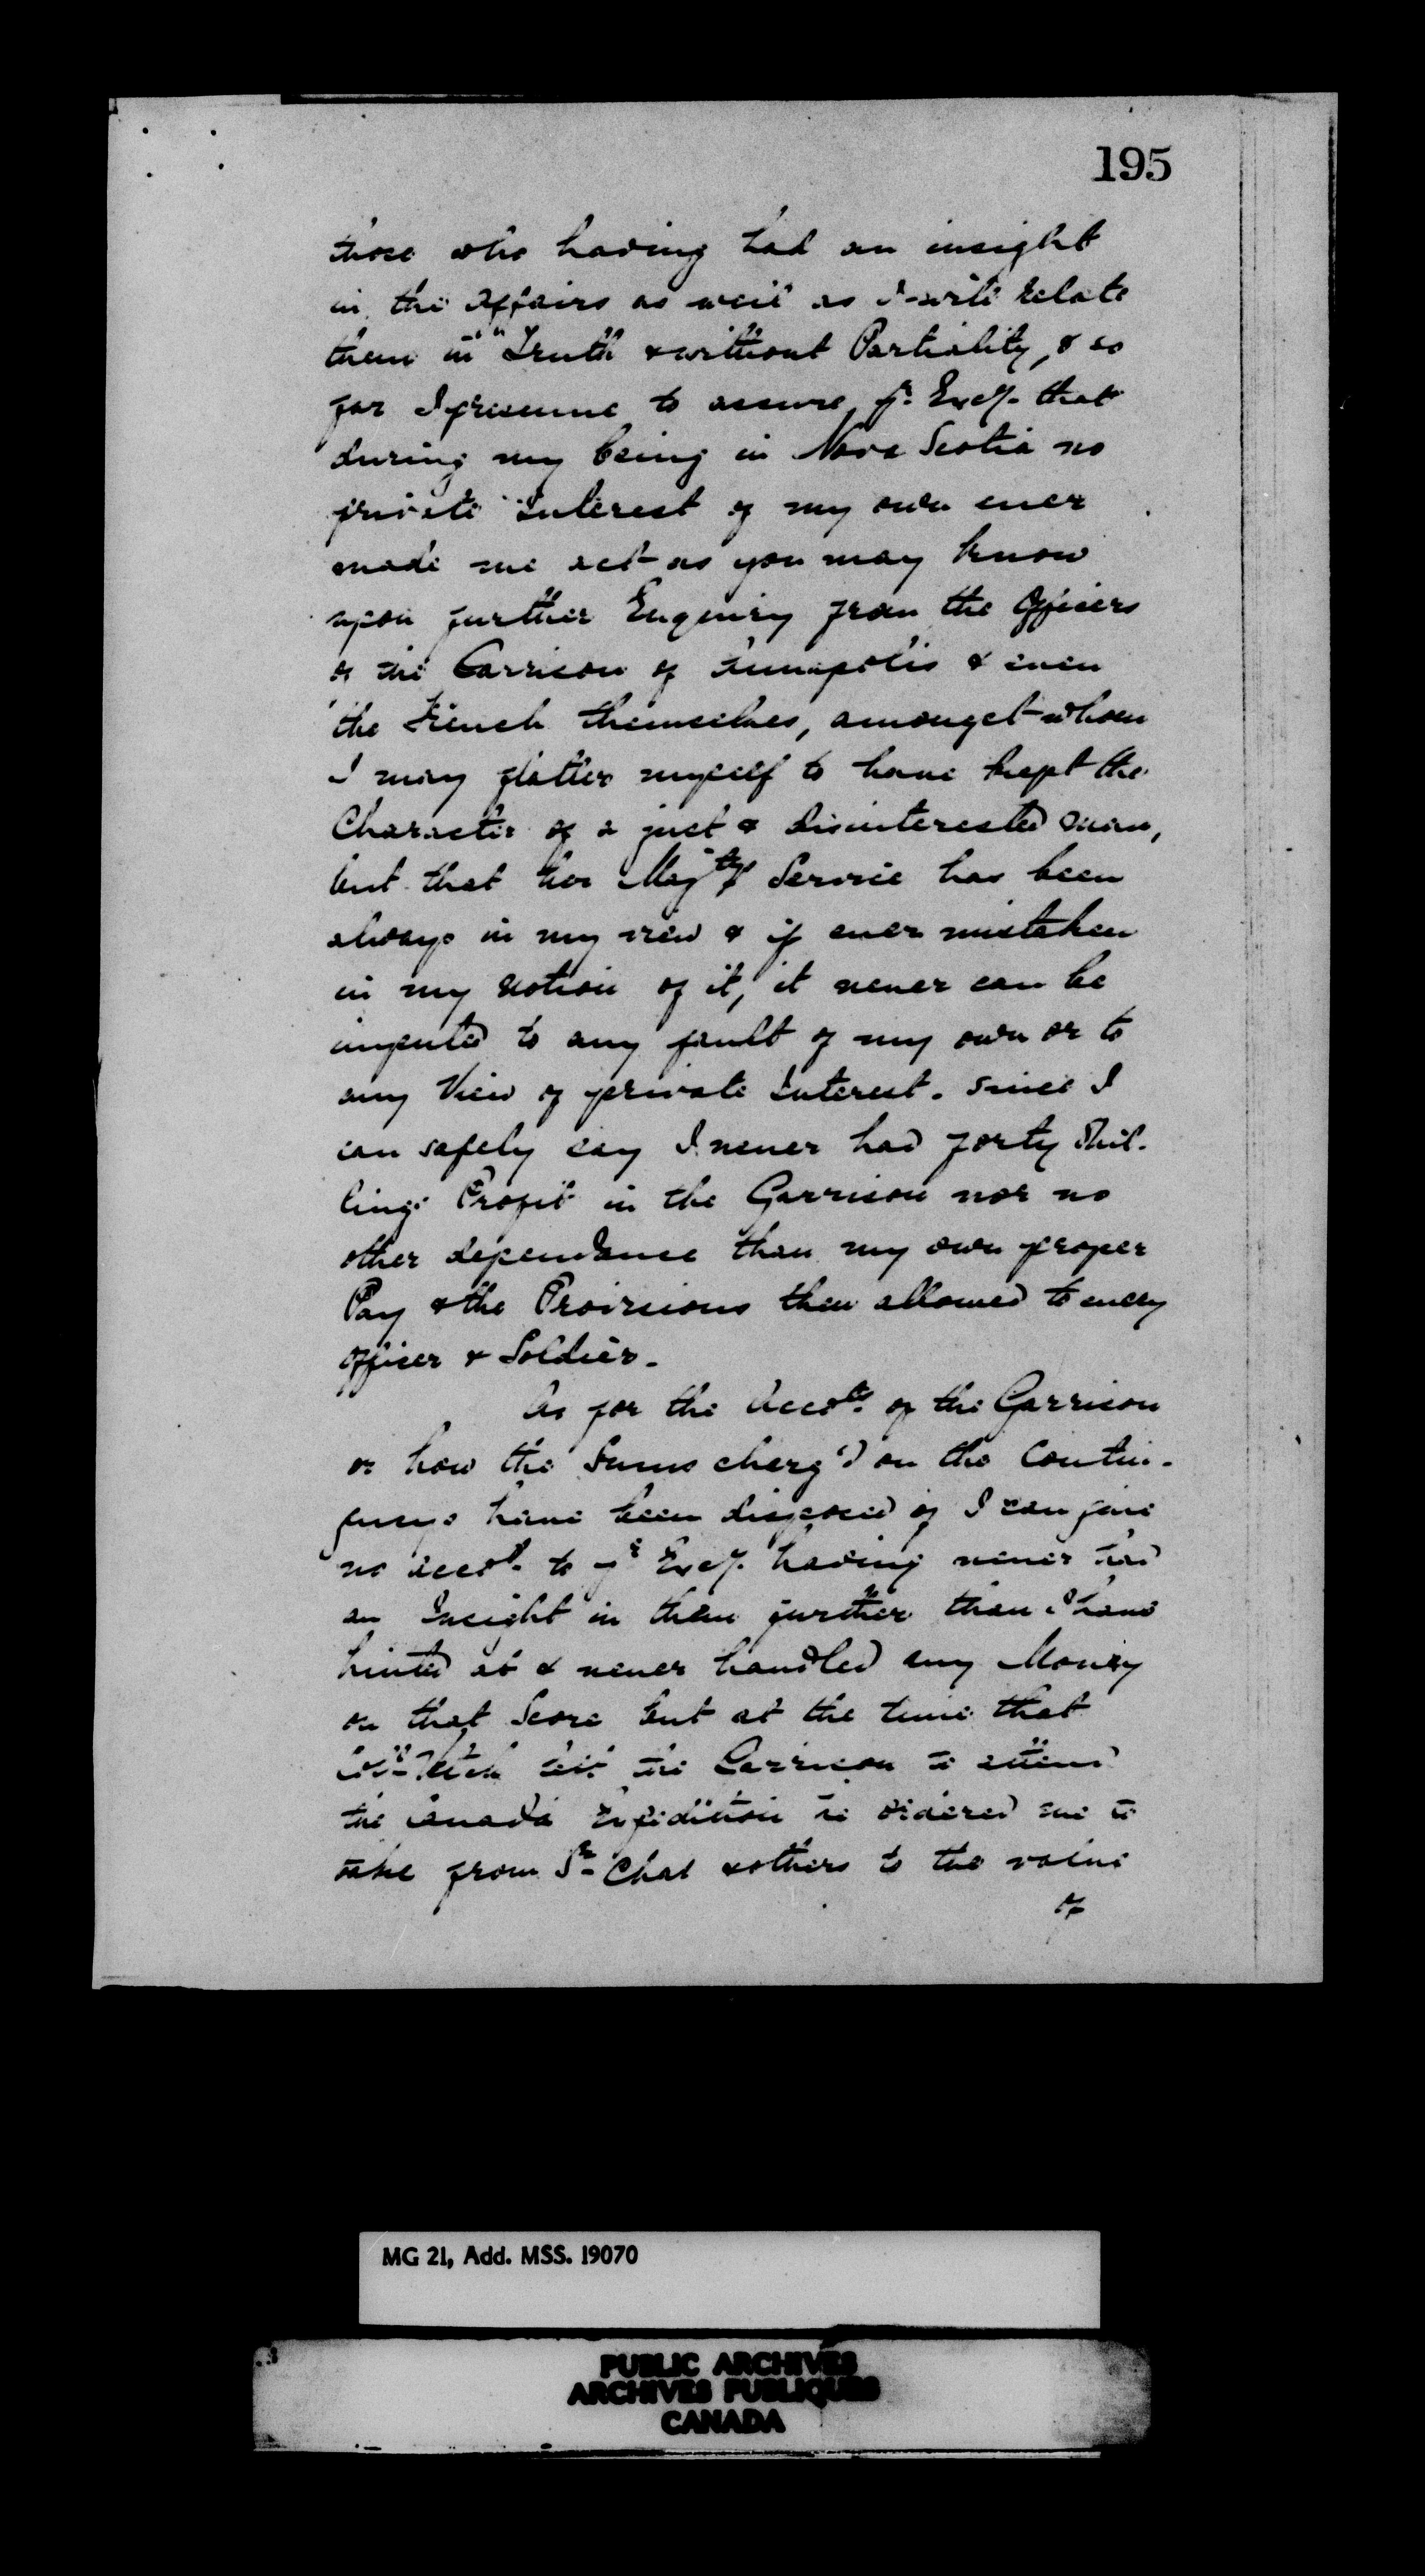 195
those who having had an insight
in the Affairs as well as I will relate
them in Truth & without Partiality, & so
far I presume to assure yr. Excy. that
during my being in Nova Scotia no
private Interest of my own ever
made me act as you may know
upon further Enquiry from the Officers
of the Garrison of Annapolis & even
the French themselves, amongst whom
I may flatter myself to have kept the
Character of a just & disinterested man,
but that her Majtys Service has been
always in my view & if ever mistaken
in my notion of it, it never can be
imputed to any fault of my own or to
any View of private Interest. Since I
can safely say I never had forty Shil-
lings Profit in the Garrison nor no
other dependance than my own proper
Pay & the Provisions then allowed to every
Officer & Soldier.
As for the Accots. of the Garrison
or how the Sums charg'd on the Contin-
gencys have been disposed of I can give
no accot. to yr Excy. having never had
an Insight in them further than I have
hinted at & never handled any Money
on that Score but at the time that
left the Garrison to attend
the Canada Expedition he ordered me to
take from & others to the value
of
MG 21, Add. MSS. 19070
PUBLIC ARCHIVES
ARCHIVES PUBLIQUES
CANADA